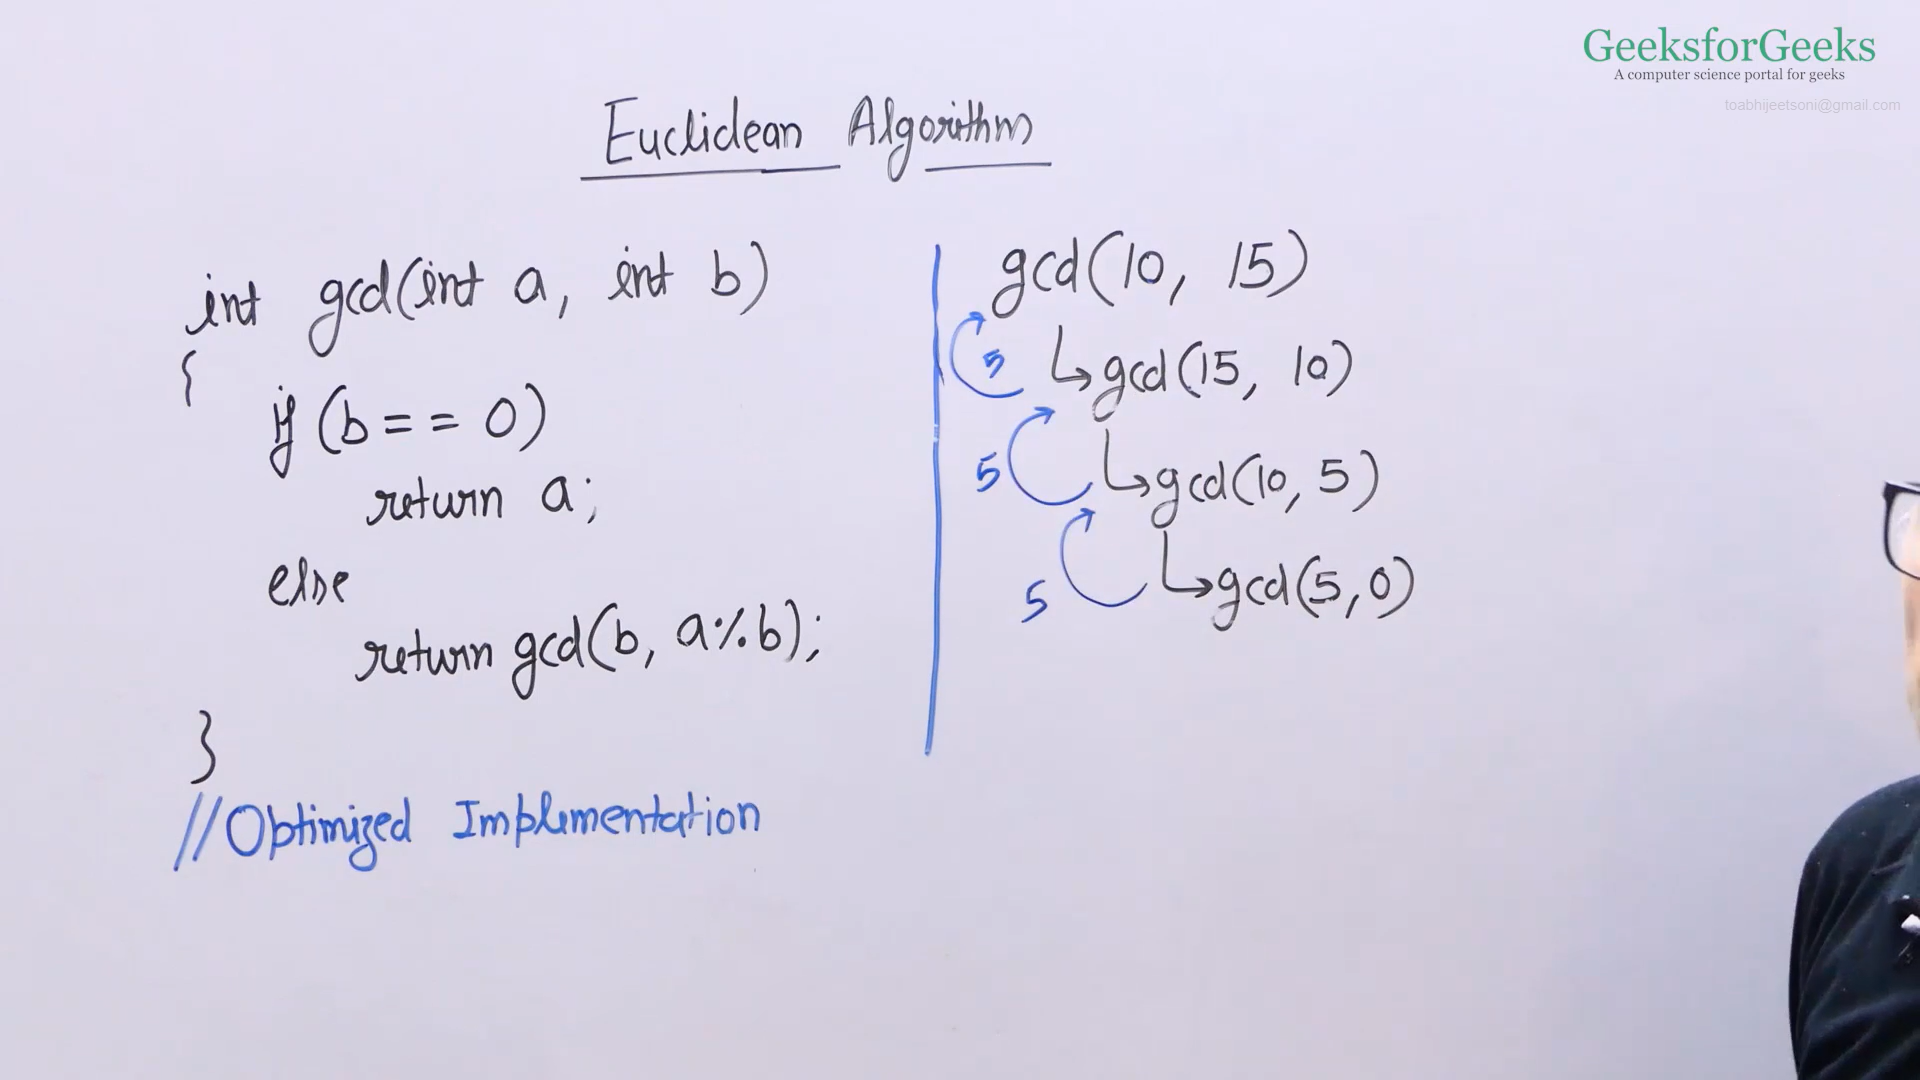 GeeksforGeeks
A computer science portal for geeks
toabhijeetsoni@gmail.com
Euclidean Algorithm
int gcd(int a, int b)
{
if (b == 0)
return a;
else
return gcd(b, a%b);
}
//Optimized Implementation
gcd(10, 15)
5
gcd(15, 10)
5
gcd(10, 5)
5
gcd(5,0)